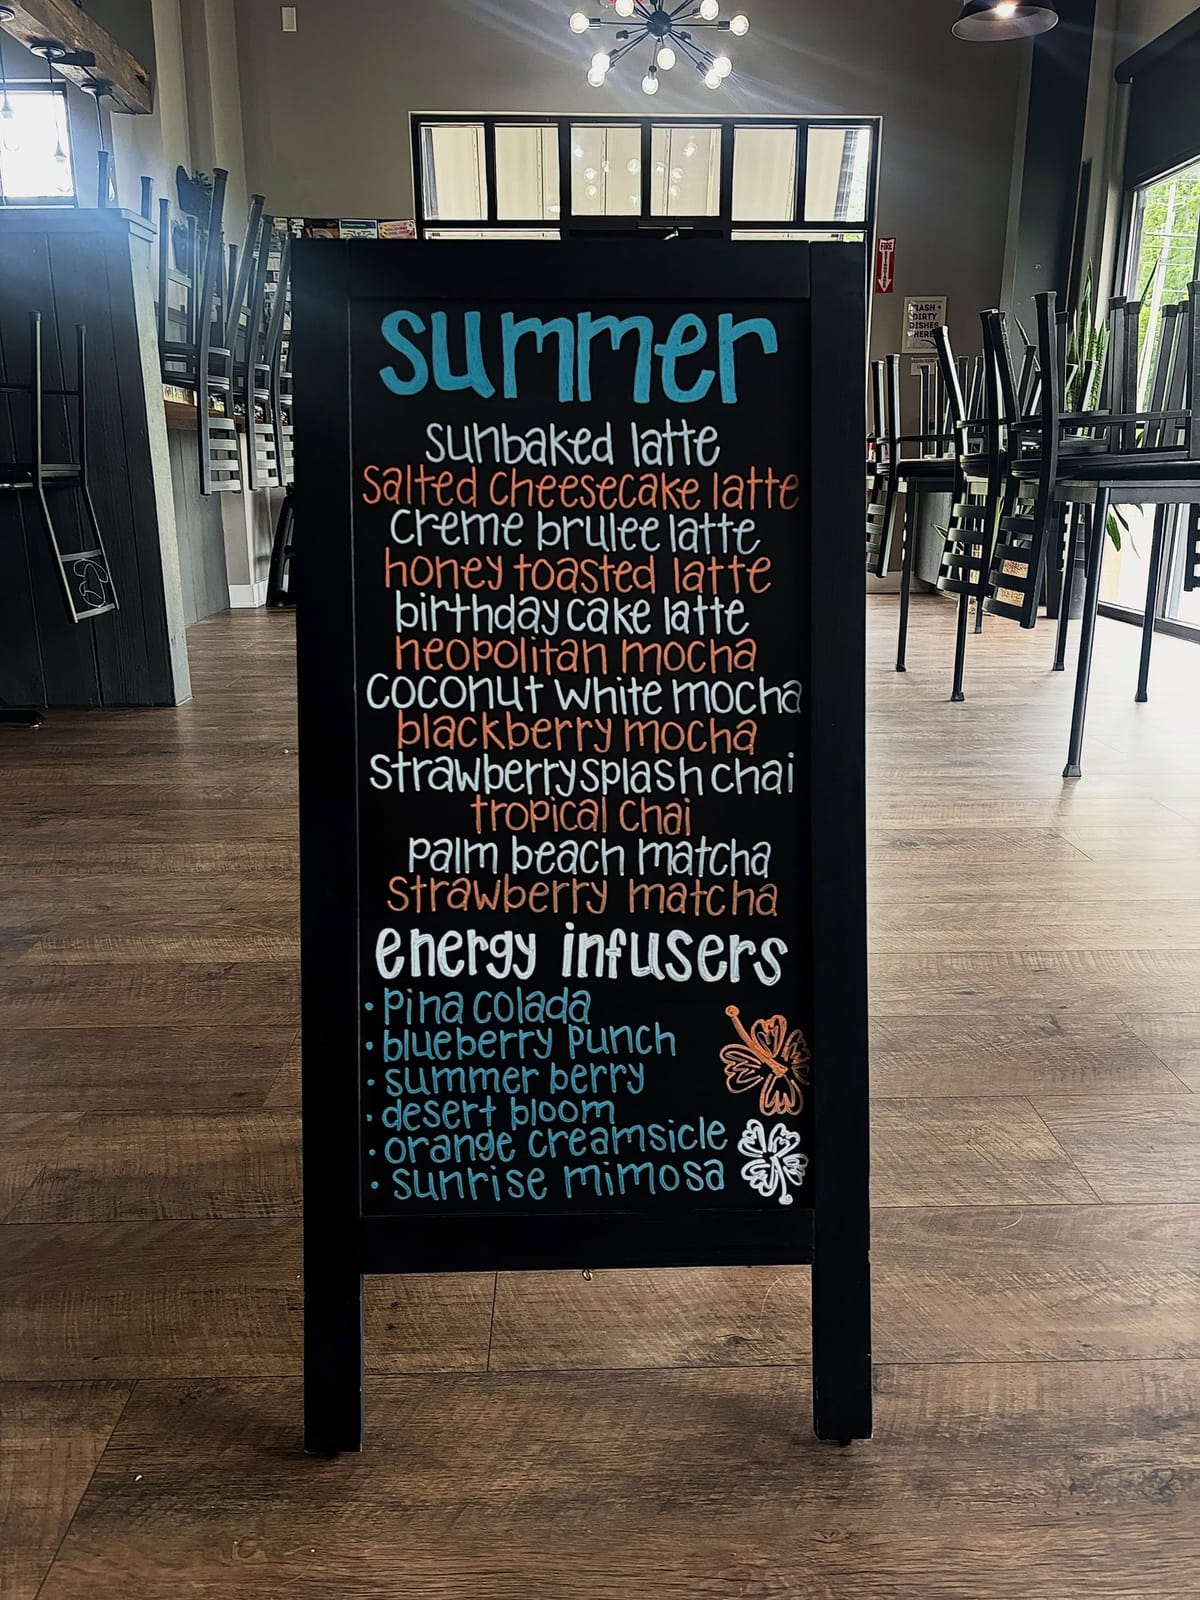 summer
sunbaked latte
salted cheesecake latte
creme brulee latte
honey toasted latte
birthday cake latte
neopolitan mocha
coconut white mocha
blackberry mocha
strawberry splash chai
tropical chai
palm beach matcha
strawberry matcha
energy infusers
• pina colada
• blueberry punch
• summer berry
• desert bloom
• orange creamsicle
• sunrise mimosa
FIRE
TRASH +
DIRTY
DISHES
HERE